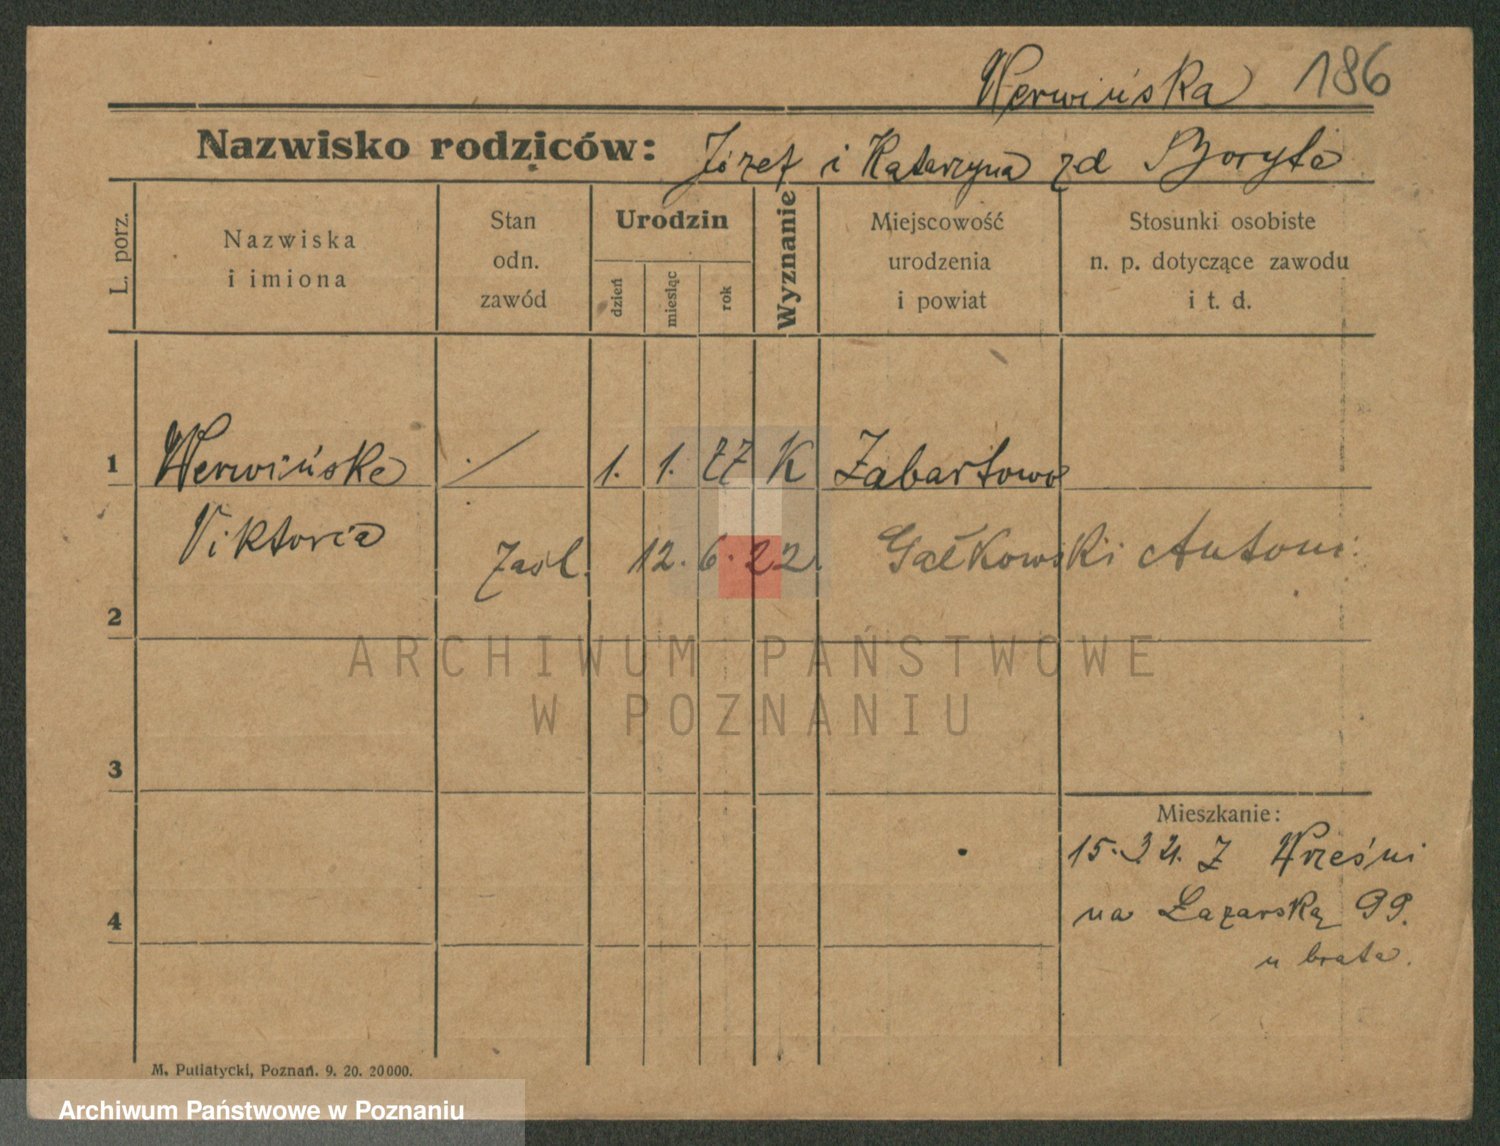 Werwińska 186
Nazwisko rodziców: Józef i Katarzyna zd Boryta
L. porz.
Nazwiska
i imiona
Stan
odn.
zawód
Urodzin
dzień
miesiąc
rok
Wyznanie
Miejscowość
urodzenia
i powiat
Stosunki osobiste
n. p. dotyczące zawodu
i t. d.
1 Werwińska / 1. 1. 77 K Zabartowo
Viktoria
Zaśl. 12. 6. 22. Gałkowski Antoni.
2
ARCHIWUM PAŃSTWOWE
W POZNANIU
3
Mieszkanie:
15. 3 21. Z Wrześni
4
na Łazarską 99.
u brata.
M. Putiatycki, Poznań. 9. 20. 20000.
Archiwum Państwowe w Poznaniu